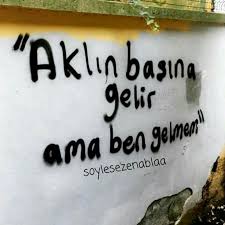 "Aklın başına
gelir
ama ben gelmem"
soylesezenablaa